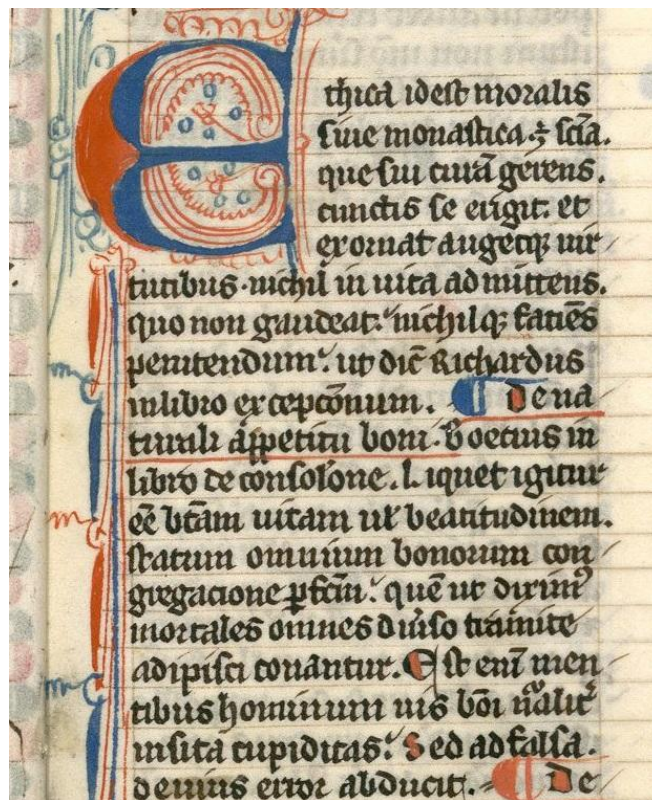 Ethica id est moralis
siue monastica. ē scīa.
que sui curā gerens.
cunctis se erigit. et
exornat augetqꝫ uir
tutibus. nichil in uita admittens.
quo non gaudeat. nichilqꝫ faciēs
penitendum. ut dic̄ Richardus
in libro excepcōnum. ¶ De na
turali appetitu boni. Boecius in
libro de consolōne. Liquet igitur
eē btām uitam uł beatitudinem.
statum omnium bonorum con
gregacione ꝑfcm̄. quē ut dixim⁹
mortales omnes diu̓so tramite
adipisci conantur. Est eni̅ men
tibus hominum uis bōi nālit̓
insita cupiditas. Sed ad falsa.
deuius error abducit. ¶ De